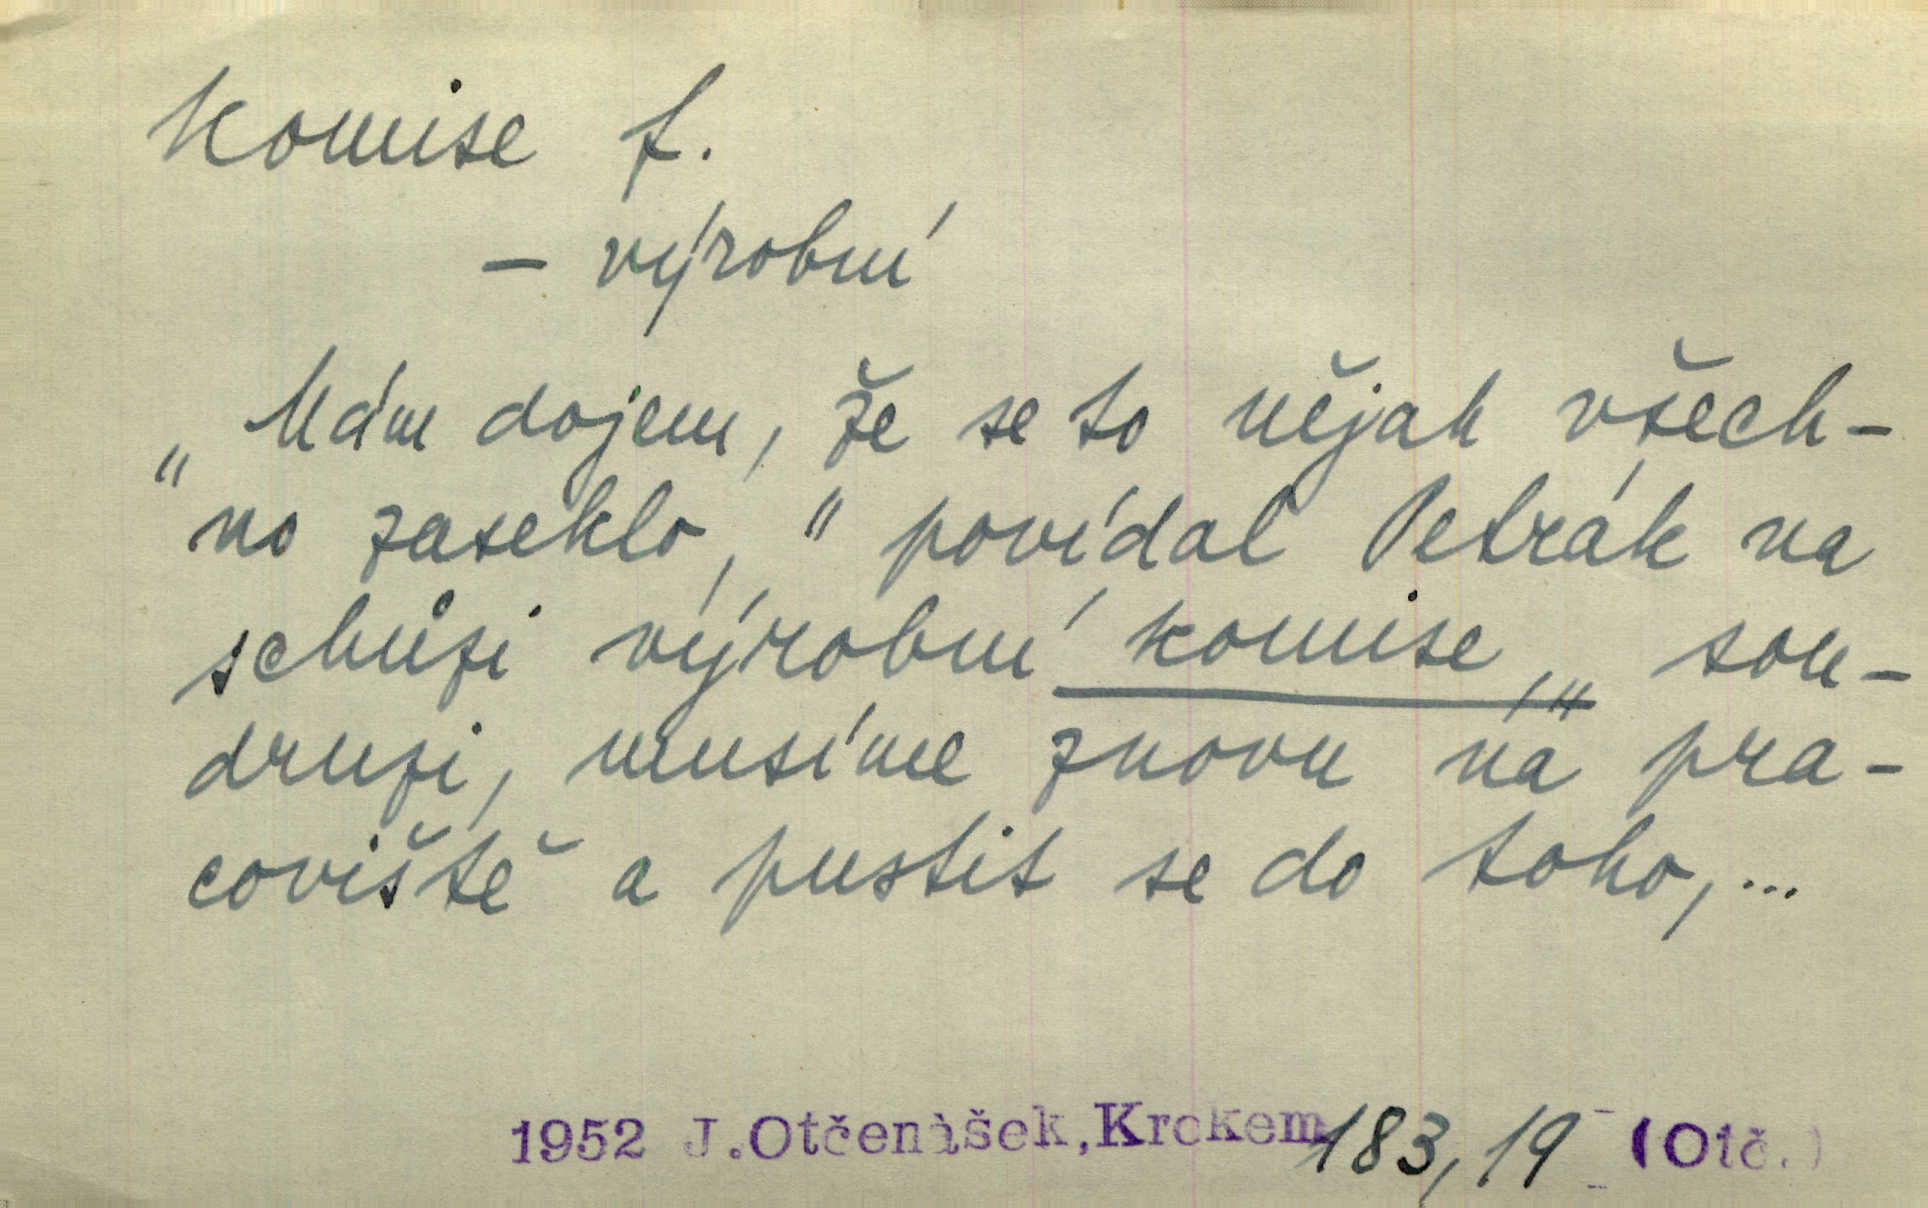 komise f.
– výrobní
„Mám dojem, že se to nějak všech-
no zaseklo," povídal Petrák na
schůzi výrobní komise, „sou-
druzi, musíme znovu na pra-
coviště a pustit se do toho, ...
1952 J.Otčenášek,Krokem 183,19 (Otč.)